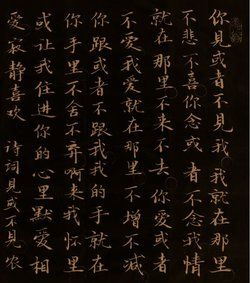 你見或者不見我我就在那里
不悲不喜你念或者不念我情
就在那里不来不去你爱或者
不爱我爱就在那里不增不减
你跟或者不跟我我的手就在
你手里不舍不弃啊来我怀里
或让我住进你的心里默爱相
爱寂静喜欢 诗词見或不見